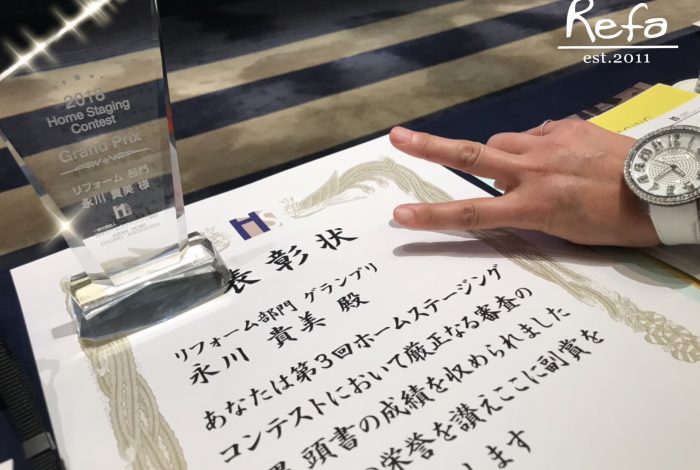 Refa
est.2011
2018
Home Staging
Contest
Grand Prix
リフォーム 部門
永川 貴美 様
JAPAN HOME
STAGING ASSOCIATION
HS
表彰状
リフォーム部門 グランプリ
永川 貴美 殿
あなたは第3回ホームステージング
コンテストにおいて厳正なる審査の
頭書の成績を収められました
の栄誉を讃えここに副賞を
します